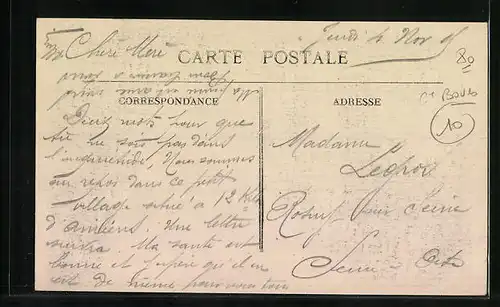 Jeudi 4 Nov 15
Chère Mère
CARTE POSTALE
80
CORRESPONDANCE
ADRESSE
10
Deux mots pour que
tu ne sois pas dans
l'inquiétude, Nous sommes
au repos dans ce petit
village situé à 12 Kil
d'Amiens. Une lettre
suivra. Ma santé est
bonne et j'espère qu'il en
est de même pour vous tous
Madame
sur Seine
Seine